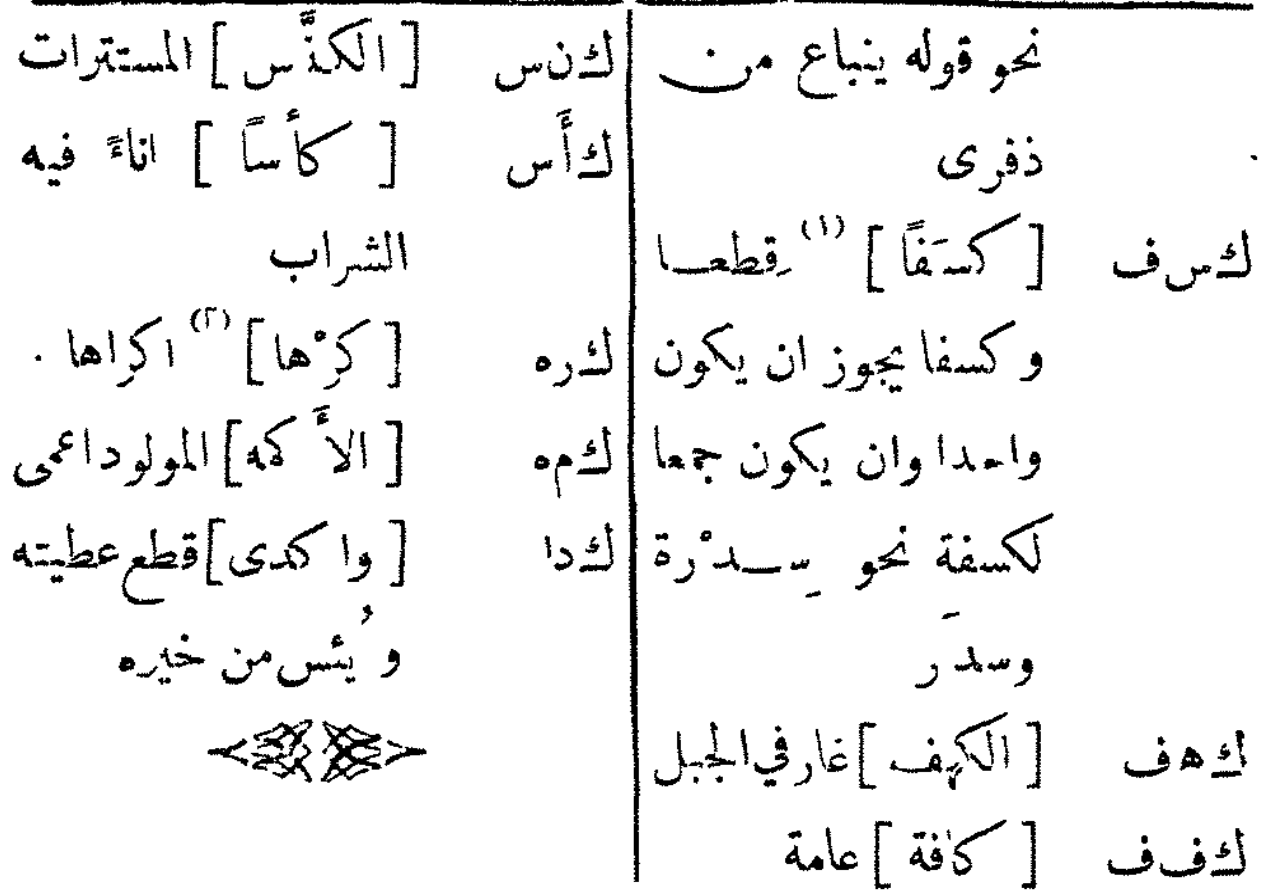 نحو قوله ينباع من
ذفرى
ك س ف [ كسَفاً ] (١) قِطعا
و كسفا يجوز ان يكون
واحدا وان يكون جمعا
لكسفة نحو سِدْرة
وسدَر
ك ه ف [ الكهف ] غار في الجبل
ك ف ف [ كافة ] عامة
ك ن س [ الكنَّس ] المستترات
ك أَ س [ كأساً ] اناءً فيه
الشراب
ك ر ه [ كرْها ] (٢) اكراها .
ك م ه [ الأَكمه ] المولود اعمى
ك د ا [ واكدى ] قطع عطيته
ويُئس من خيره